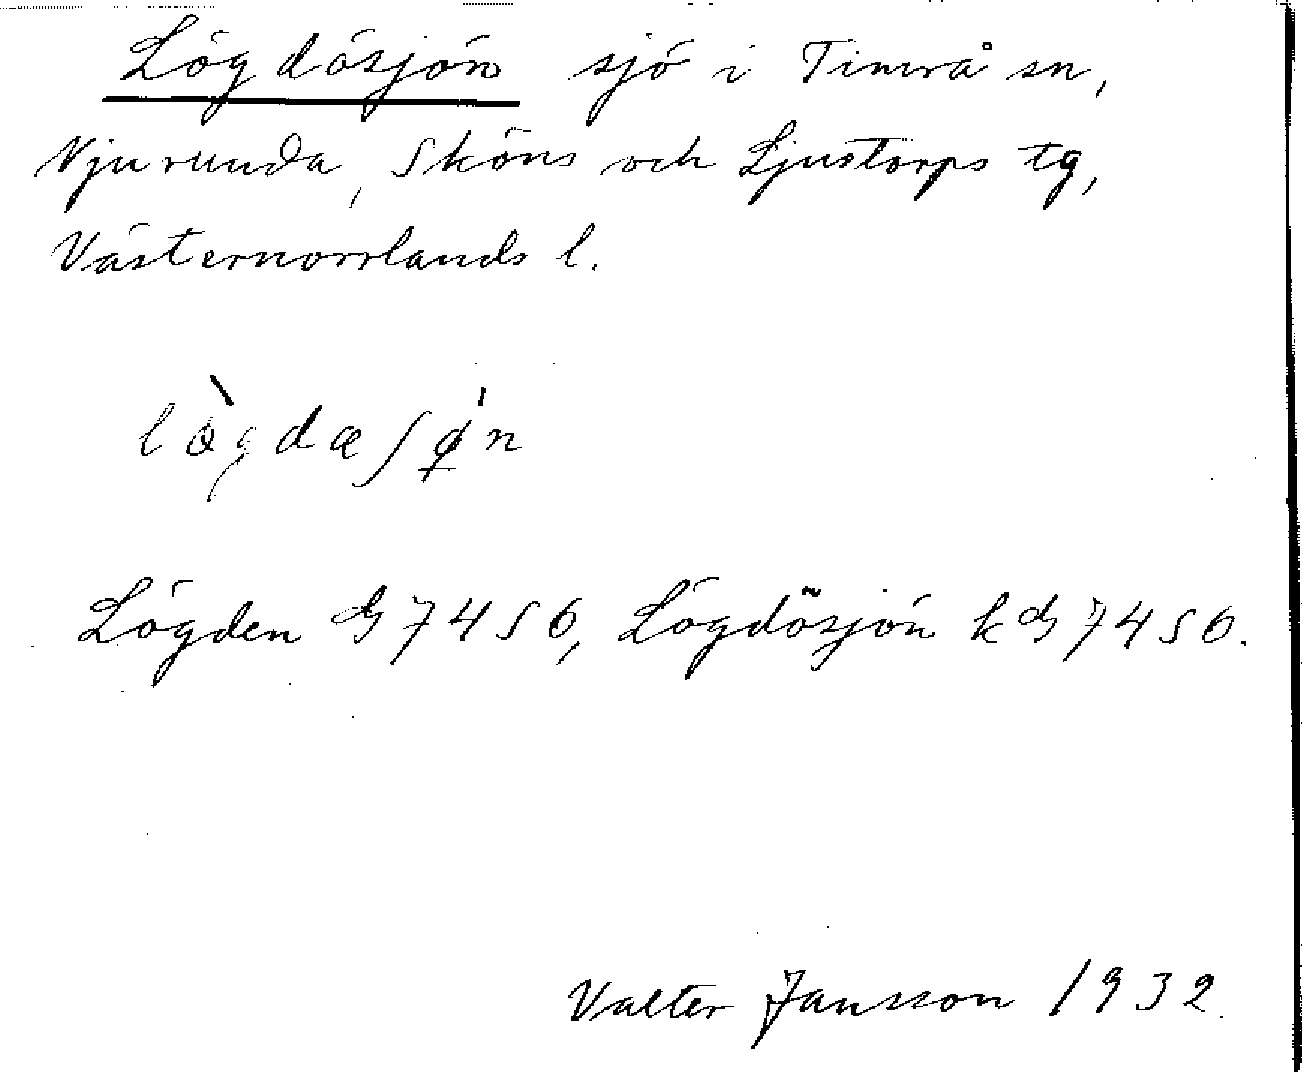 Lögdösjön sjö i Timrå sn,
Njurunda, Sköns och Ljustorps tg,
Västernorrlands l.
Lögden G 7456, Lögdösjön k G 7456.
Valter Jansson 1932.